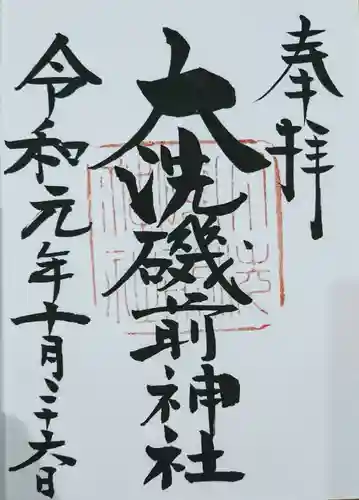 奉拝
大洗磯前神社
令和元年十月二十六日